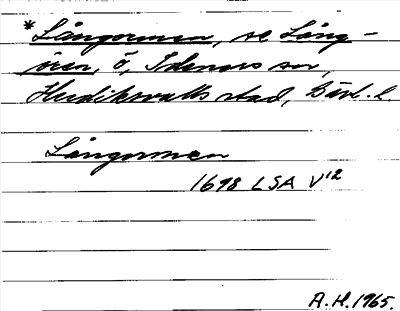 *Långormen, se Lång-
ören, ö, Idenors sn,
Hudiksvalls stad, Gävl. l.
Långorman
1698 LSA V¹²
A.H. 1965.